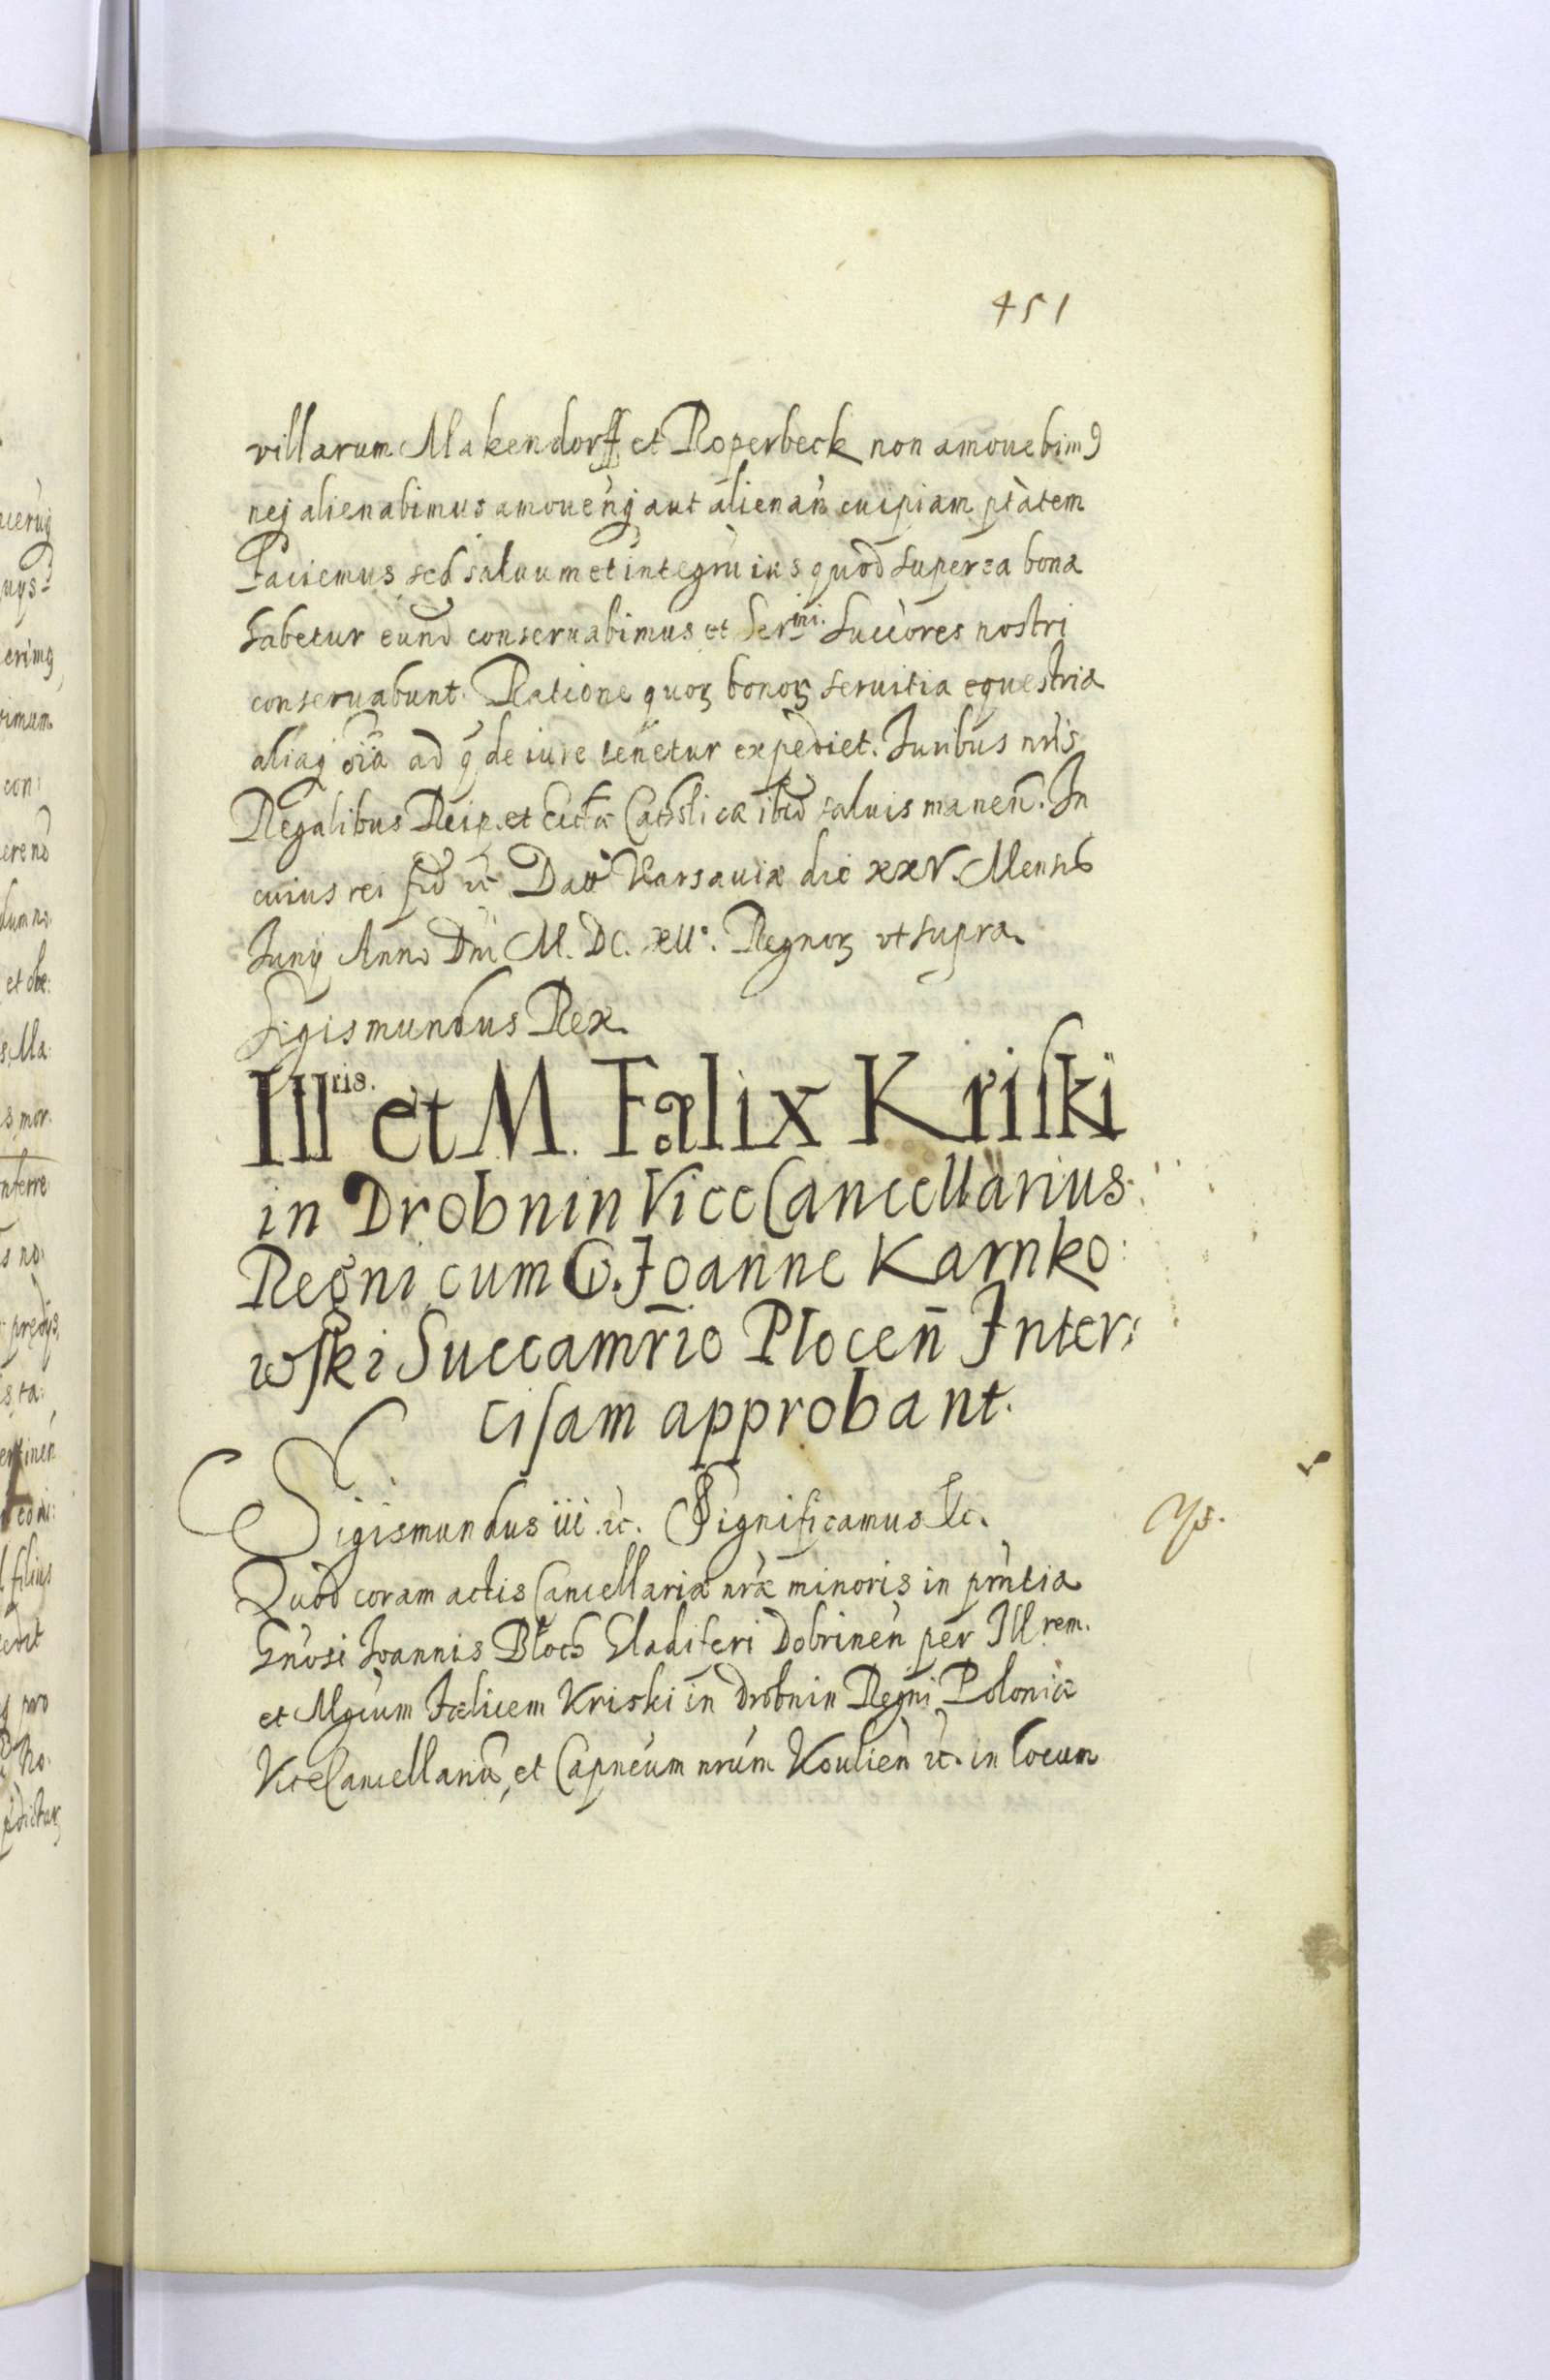 451
villarum Makendorff et Roperbeck non amouebimꝰ
neq alienabimus amouenq aut alienan cuipiam ptatem
Faciemus, sed saluum et integru ius quod super ea bona
habetur eund conseruabimus et Ser.mi Succores nostri
conseruabunt. Ratione quoꝝ bonoꝝ seruitia equestria
aliaq oia ad q de iure tenetur expediet. Iuribus nris
Regalibus Reip. et Eccliæ Catholicæ ibid saluis manen. In
cuius rei fid ꝛc Datt Varsauiæ die xxV. Mensis
Iunij Anno Dni M. DC. XII°. Regnoꝝ vt supra.
Sigismundus Rex.
Ill ris. et M. Fælix Kriski
in Drobnin ViceCancellarius
Regni cum G. Joanne Karnko:
wski Succamrio Plocen Inter:
cisam approbant.
Sigismundus iii ꝛc. Significamus &c.
Quod coram actis Cancellariæ nræ minoris in pntia
Gnosi Ioannis Bloch Gladiferi Dobrinen per Ill rem.
et Mgcum Fælicem Kriski in Drobnin Regni Poloniæ
ViceCancellariu, et Capneum nrum Koulien ꝛc. in locum